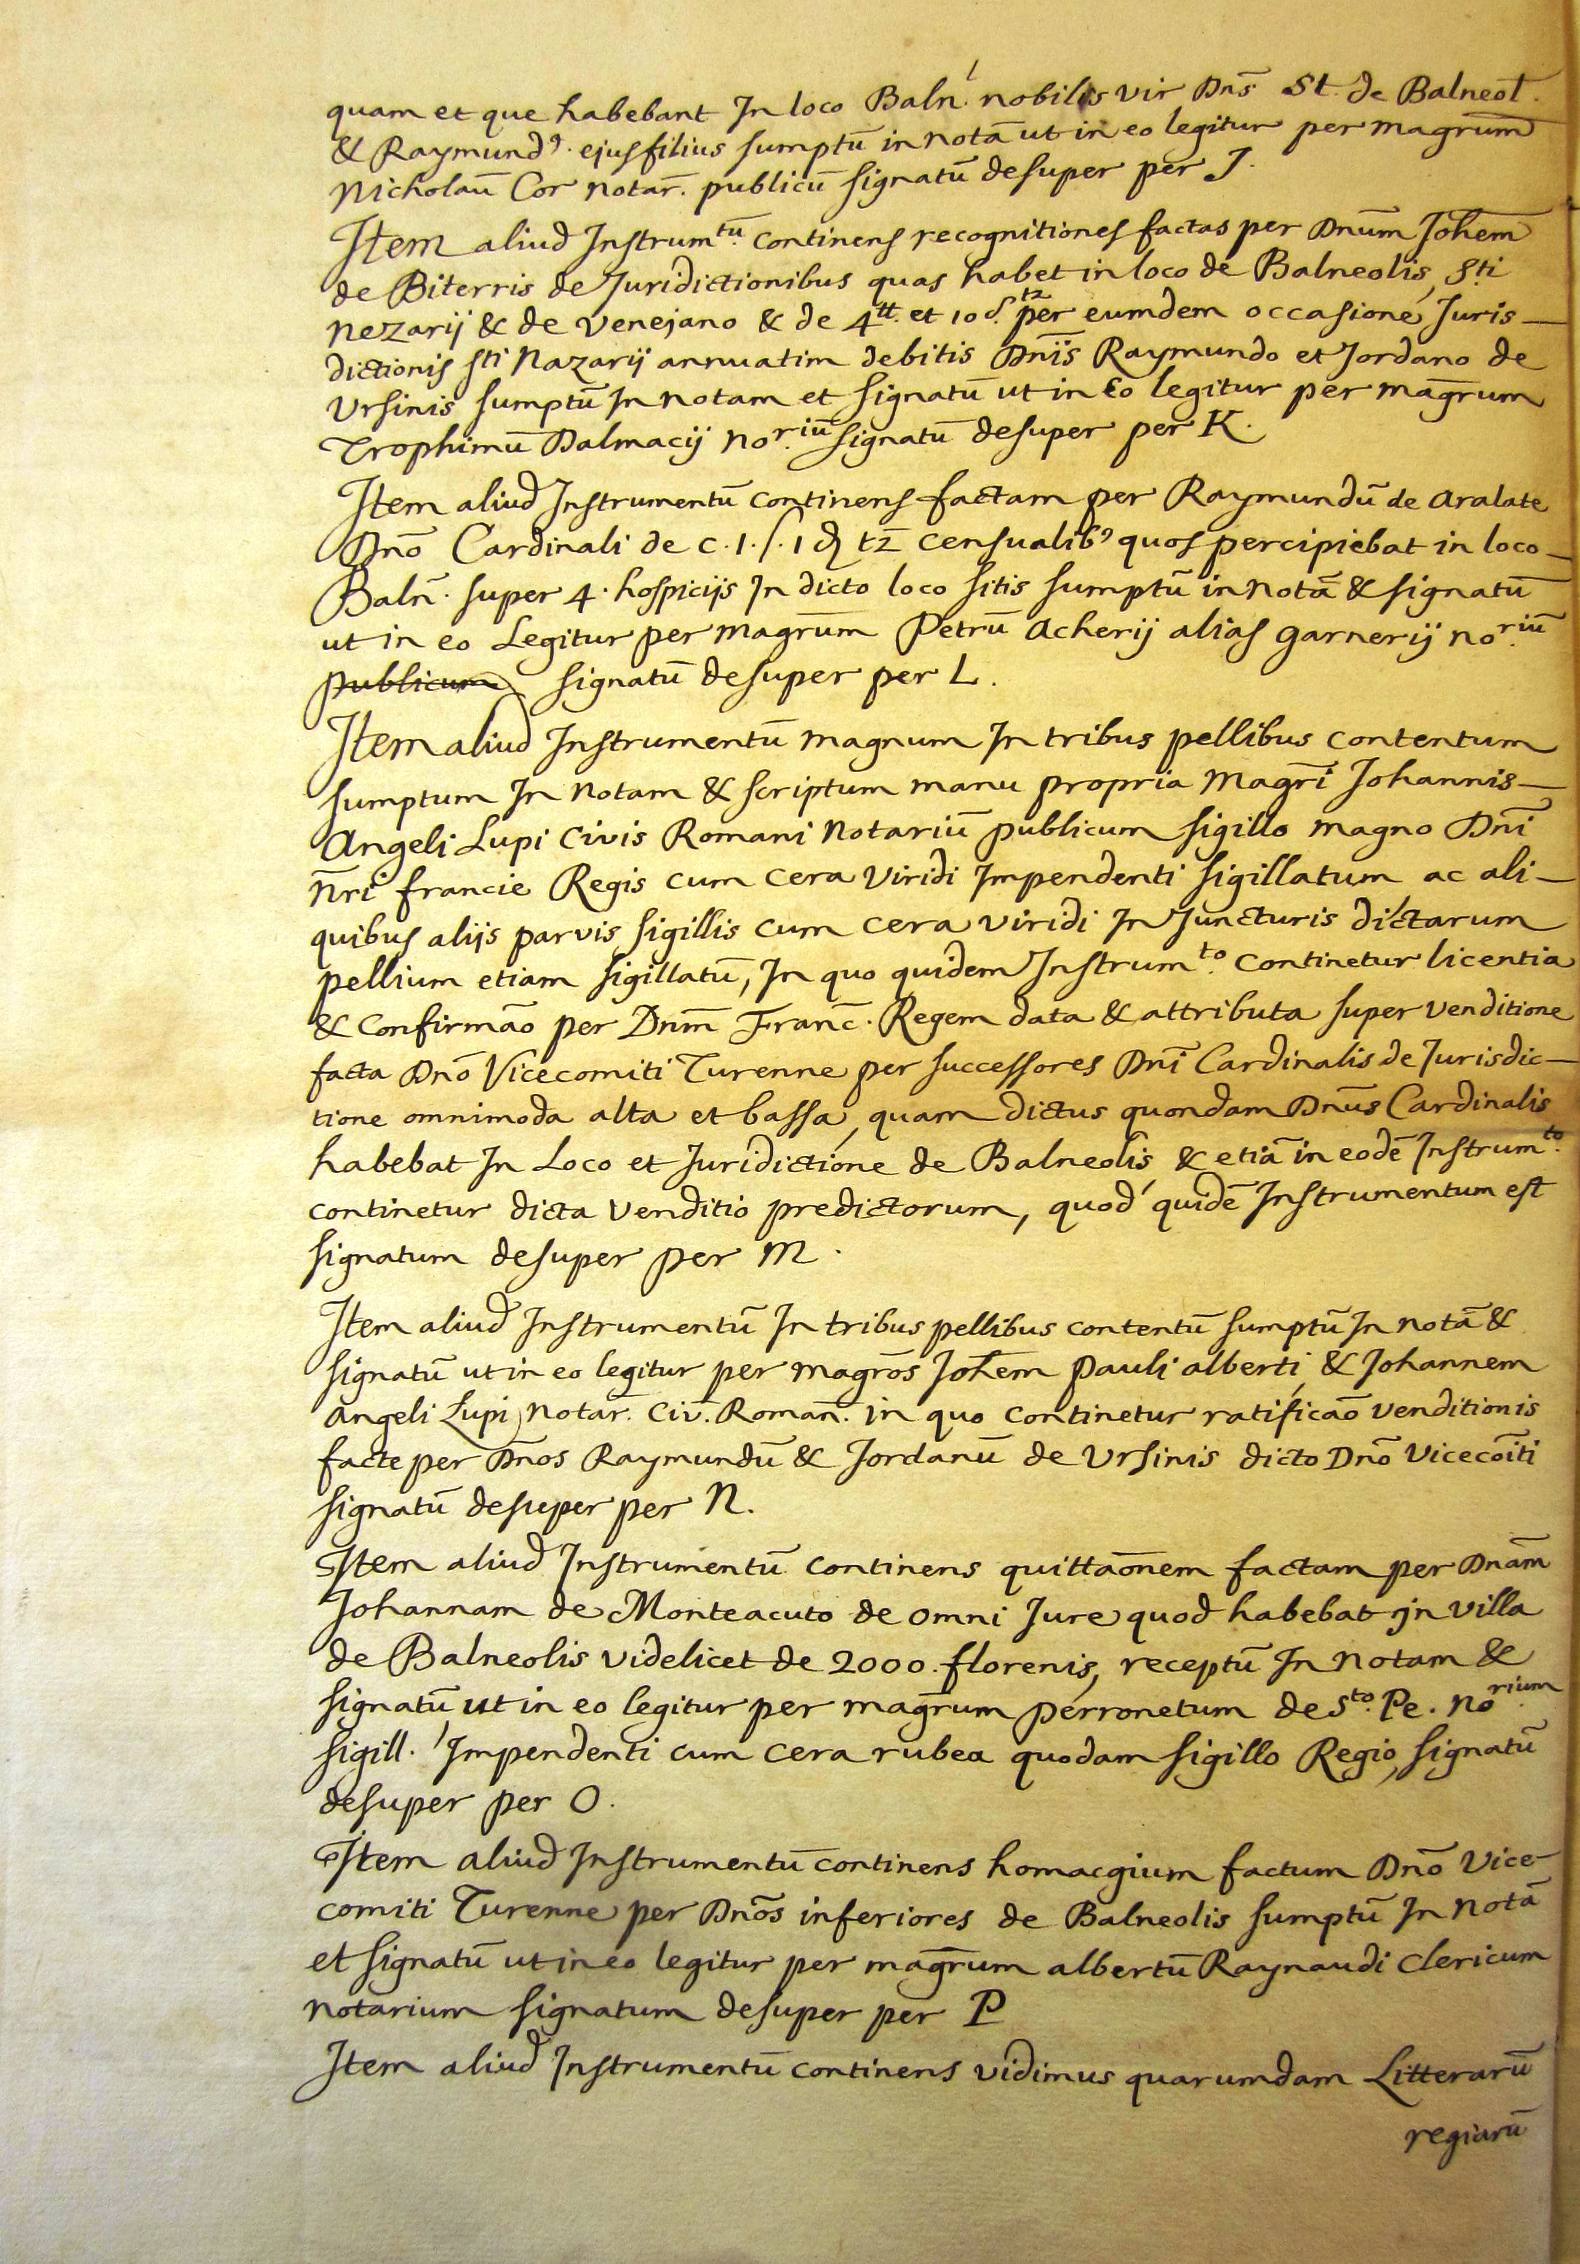 quam et que habebant In loco Baln. nobilis vir Dn̄s St. de Balneol.
& Raymundꝰ. ejus filius sumptū in notā ut in eo legitur per magrum̄
Nicholaū Cor notar̄. publicū signatū desuper per J.
Item aliud Instrumtū. continens recognitiones factas per Dnūm Johēm
de Biterris de Juridictionibus quas habet in loco de Balneolis, Sti
Nezarij & de Venejano & de 4tt. et 10 s. tz per eumdem occasione Juris—
dictionis sti Nazarij annuatim debitis Dn̄is Raymundo et Jordano de
Ursinis sumptū In notam et signatū ut in Eo legitur per magr̄um
Trophimū Dalmacij no.riū signatū desuper per K.
Item aliud Instrumentū continens factam per Raymundū de Aralate
Dnō Cardinali de c.1.s.1 d tz̄ censualibꝰ quos percipiebat in loco—
Baln̄. super 4. hospicijs In dicto loco sitis sumptū in notā & signatū
ut in eo Legitur per magrūm Petrū Acherij alias garnerij no.riū
publicum signatū desuper per L.
Item aliud Instrumentū magnum In tribus pellibus contentum
sumptum In notam & scriptum manu propria Magr̄i Johannis—
Angeli Lupi Civis Romani Notariū publicum sigillo magno Dn̄i
N̄ri francie Regis cum cera viridi Impendenti sigillatum ac ali—
quibus alijs parvis sigillis cum cera viridi In Juncturis dictarum
pellium etiam sigillatū, In quo quidem Instrumto. continetur licentia
& confirmāo per Dnm̄ Franc̄. Regem data & attributa super venditione
facta Dnō Vicecomiti Turenne per successores Dnī Cardinalis de Jurisdic—
tione omnimoda alta et bassa, quam dictus quondam Dnūs Cardinalis
habebat In Loco et Juridictione de Balneolis & etiā in eodē Instrumto.
continetur dicta venditio predictorum, quod quidē Instrumentum est
signatum desuper per M.
Item aliud Instrumentū In tribus pellibus contentū sumptū In notā &
signatū ut in eo legitur per magrōs Johēm Pauli alberti, & Johannem
Angeli Lupi, Notar̄. Civ̄. Roman̄. in quo continetur ratificāo venditionis
facte per Dn̄os Raymundū & Jordanū de Ursinis dicto Dnō Vicecōiti
signatū desuper per N.
Item aliud Instrumentū continens quittaōnem factam per Dnām
Johannam de Monteacuto de omni Jure quod habebat in villa
de Balneolis videlicet de 2000. florenis, receptū In notam &
signatū ut in eo legitur per magr̄um perronetum de Sto. Pe. no.rium
sigill. Impendenti cum cera rubea quodam sigillo Regio, signatū
desuper per O.
Item aliud Instrumentū continens homacgium factum Dnō Vice-
comiti Turenne per Dnōs inferiores de Balneolis sumptū In notā
et signatū ut in eo legitur per magr̄um albertū Raynaudi clericum
notarium signatum desuper per P
Item aliud Instrumentū continens vidimus quarumdam Litterarū
regiarū